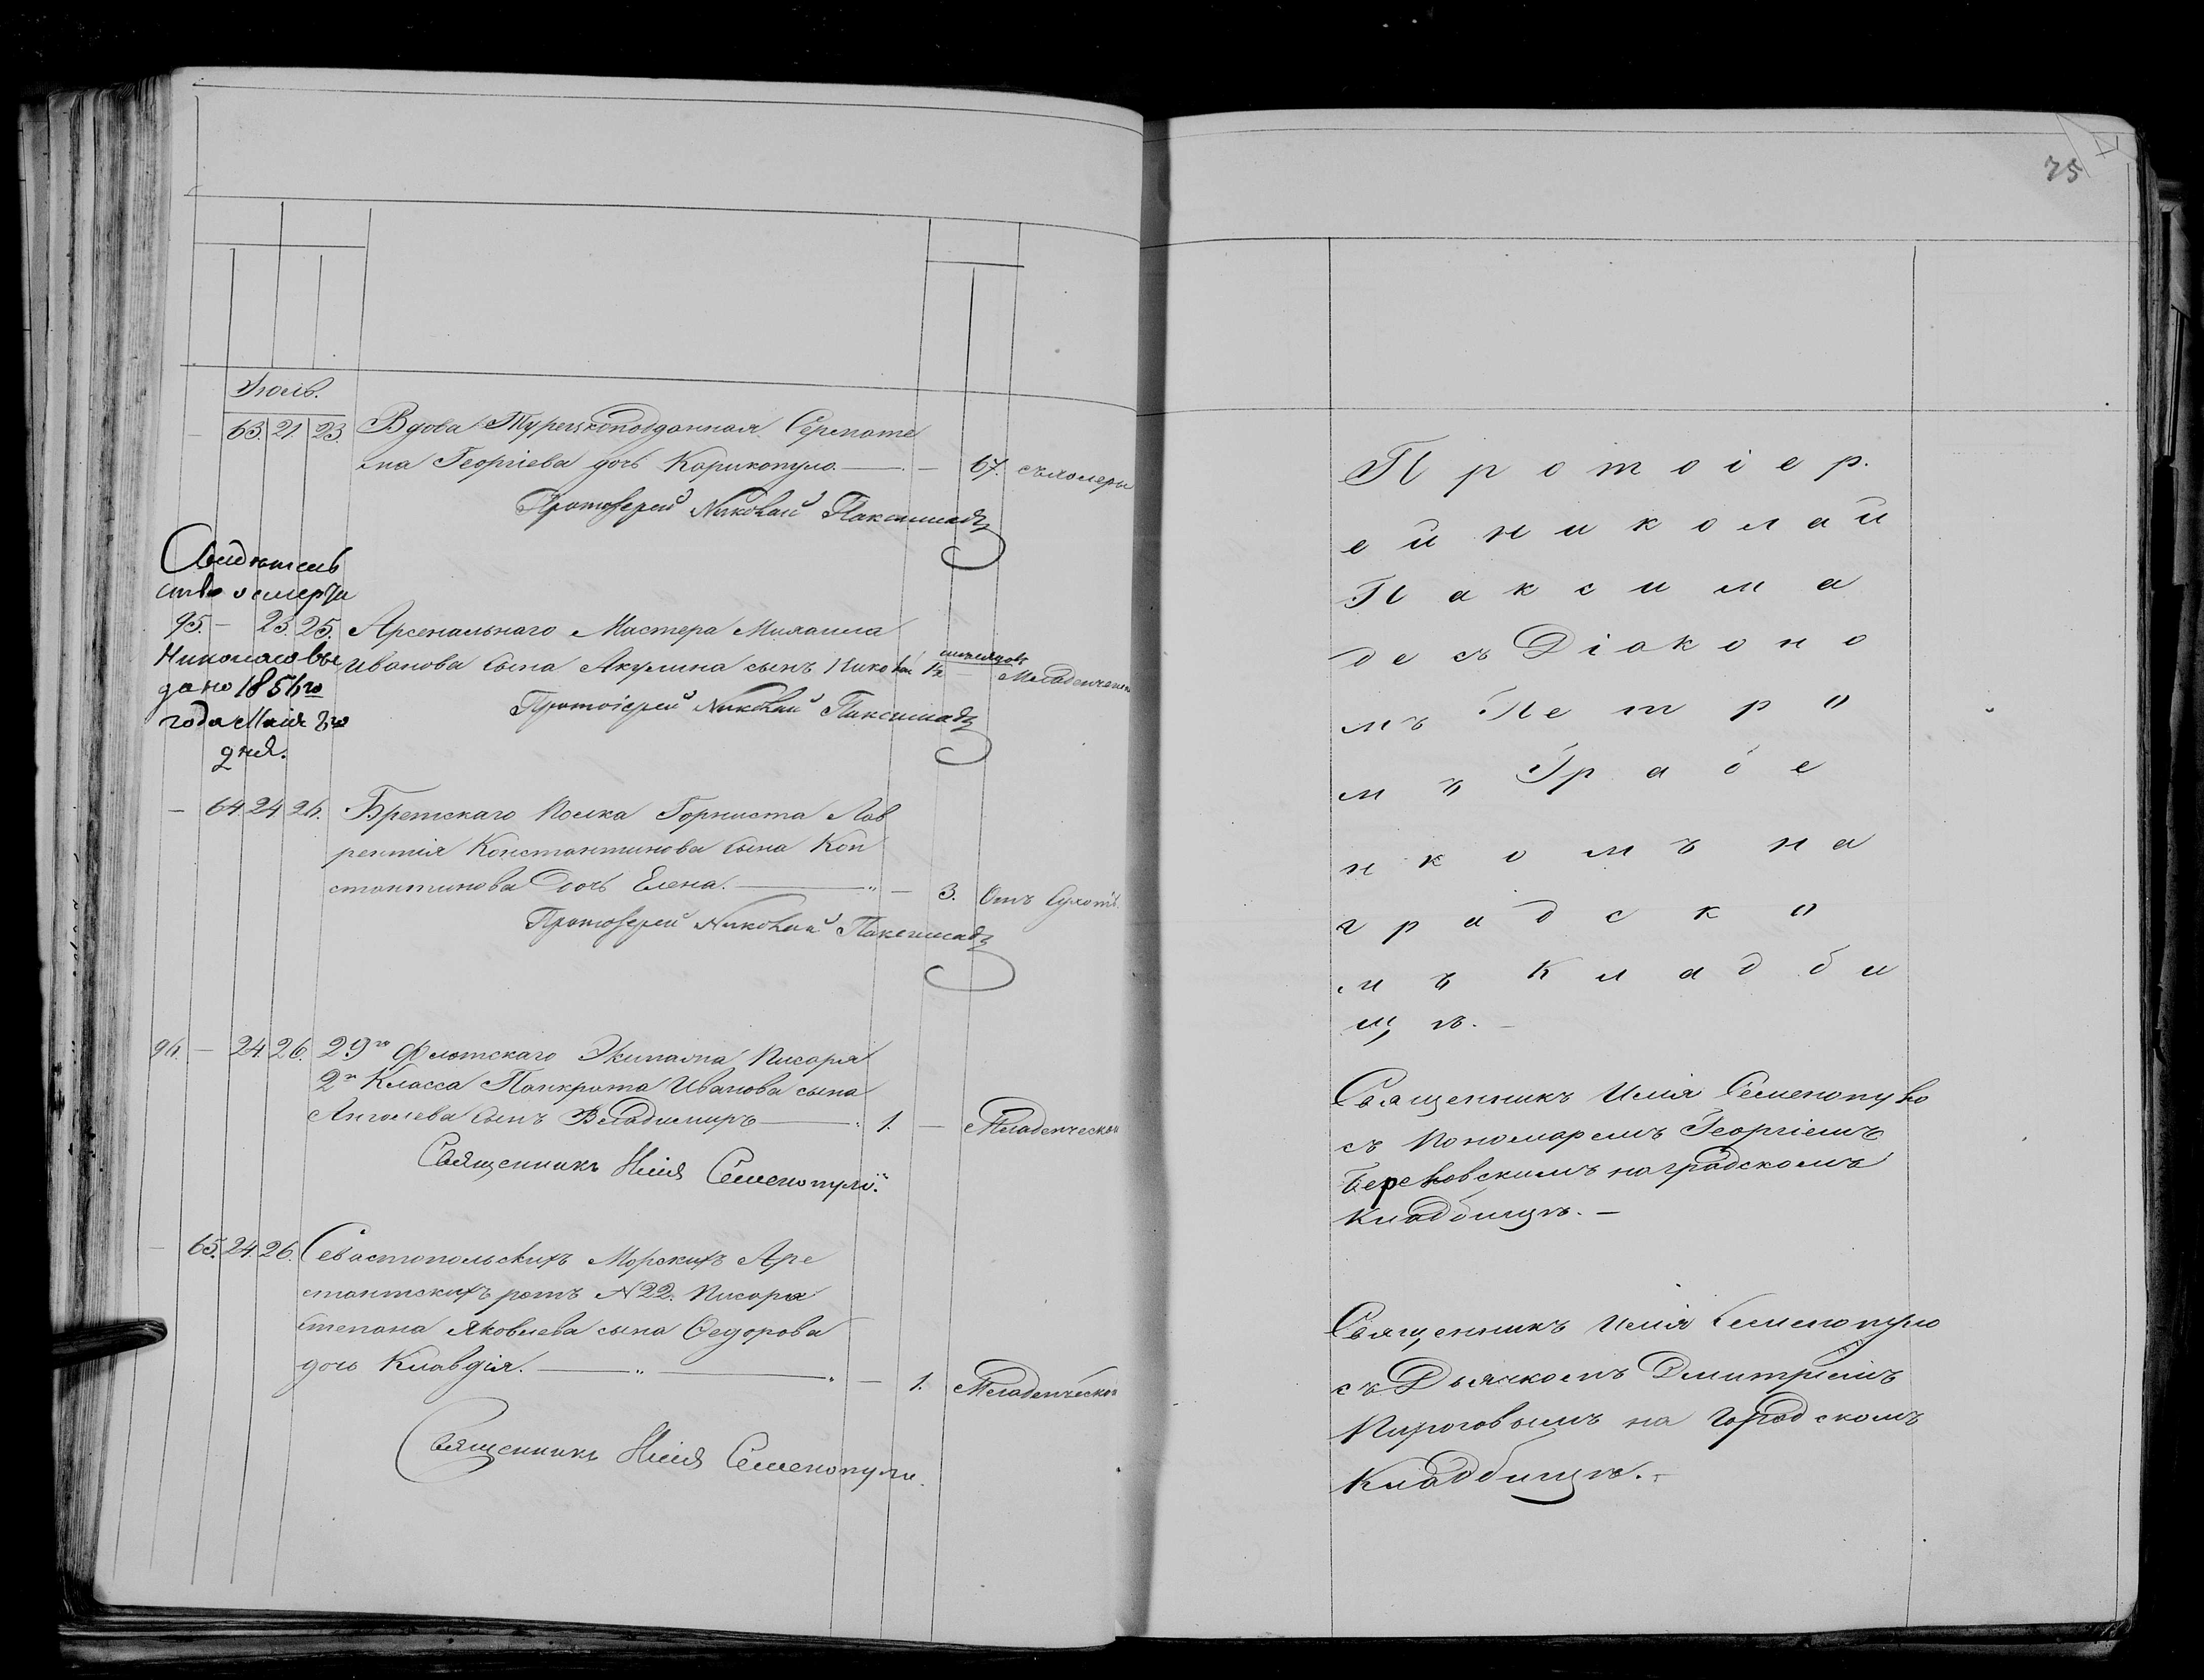 75
Іюль.
63. 21. 23. Вдова Турецкоподданная Серпоте
на Георгіева дочь Карикопуло. — 67. съ холеры
Протоіерей Николай Паксимадъ
Свидѣтель
ство о смерти
95. — 23. 25. Арсенальнаго Мастера Михаила
мѣсяцовъ
Николаовъ Иванова сына Акулина сынъ Николай 1½ — Младенческой
дано 1854го
Протоіерей Николай Паксимадъ
года Маія 3го
дня.
— 64. 24. 26. Бретскаго Полка Горниста Лав
рентія Константинова сына Кон
стантинова дочь Елена. — 3. Отъ Сухоты
Протоіерей Николай Паксимадъ
96. — 24. 26. 29го Флотскаго Экипажа Писаря
2го Класса Панкрата Иванова сына
сынъ Владимиръ — 1. — Младенческой
Священникъ Илія Семенопуло.
— 65. 24. 26. Севастопольскихъ Морскихъ Аре
стантскихъ ротъ №22. Писаря
Степана Яковлева сына Ѳедорова
дочь Клавдія. — 1. Младенческой
Священникъ Илія Семенопуло.
Протоіер.
ей Николай
Паксима
де съ Діаконо
мъ Петро
мъ Грабе
нкомъ на
градско
мъ Кладби
щѣ. —
Священникъ Илія Семенопуло
съ Пономаремъ Георгіемъ
Береновскимъ на градскомъ
Кладбищѣ. —
Священникъ Илія Семенопуло
съ Дьячкомъ Дмитріемъ
Пироговымъ на городскомъ
Кладбищѣ. —